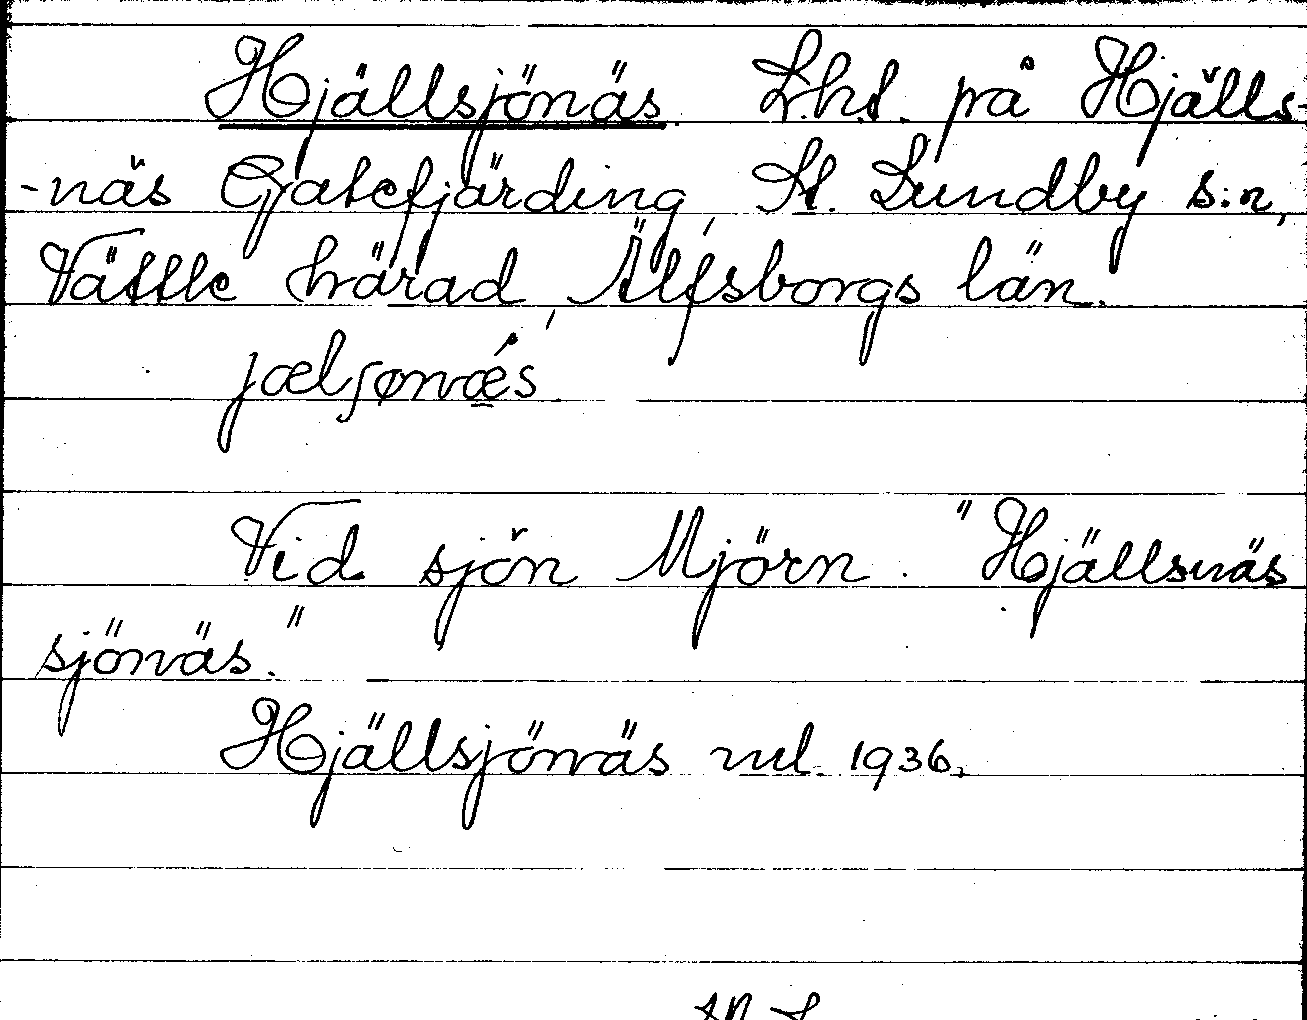 Hjällsjönäs. Lht. på Hjälls-
-näs Gatefjärding, St. Lundby s:n,
Vättle härad, Älfsborgs län.
jælʃønǽs.
Vid sjön Mjörn. "Hjällsnäs
sjönäs."
Hjällsjönäs uul. 1936.